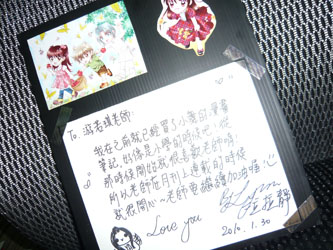 To. 游若琪老師:
我在之前就已經買了小薰的漫畫
筆記,好像是小學的時候吧,從
那時候開始我就很喜歡老師唷!
所以老師在月刊上連載的時候
我就很開心~老師要繼續加油哦!
Love you
2010.1.30